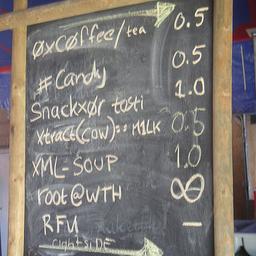 0xC0ffee/tea 0.5
#Candy 0.5
Snackxør tosti 1.0
Xtract(cow)::M1LK 0.5
XML-SOUP 1.0
root@WTH ∞
RFU —
right SIDE